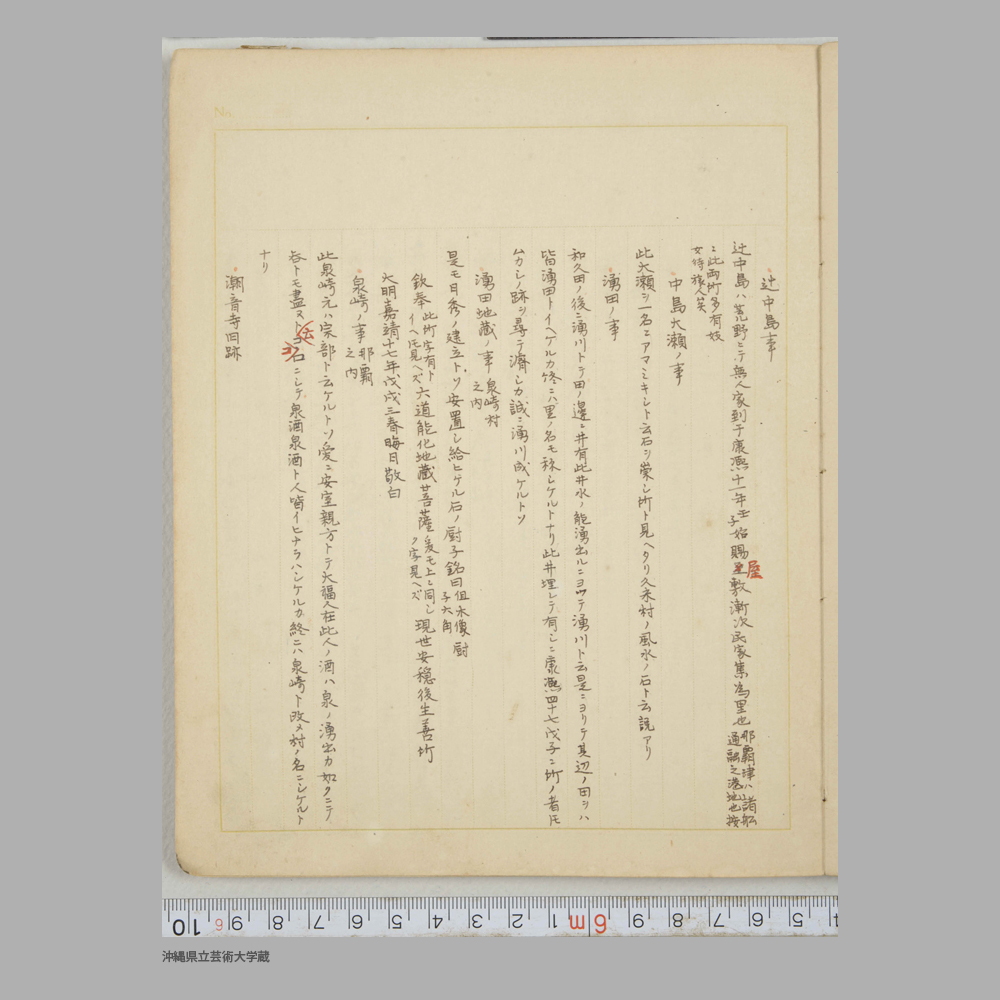 辻中島事
辻中島ハ荒野ニテ無人家到于康熙十一年壬子始賜屋敷漸次民家集為里也那覇津ハ諸舩通融之港地也按
ニ此両町多有妓女待旅人笑
中島大瀬ノ事
此大瀬ヲ一名ニアマミキント云石ヲ崇シ所ト見ヘタリ久米村ノ風水ノ石ト云説アリ
湧田ノ事
和久田ノ後ニ湧川トテ田ノ邊ニ井有此井水ノ能湧出ルニヨツテ湧川ト云是ニヨリテ其辺ノ田ヲハ
皆湧田トイヘケルカ終ニハ里ノ名モ稱シケルトナリ此井埋レテ有シニ康熙四十七戊子ニ所ノ者共
ムカシノ跡ヲ尋テ濟シカ誠ニ湧川成ケルトソ
湧田地蔵ノ事泉崎村之内
是モ日秀ノ建立トソ安置シ給ヒケル石ノ厨子銘曰但木像厨子六角
欽奉此所字有トイヘ𪜈見ヘズ六道能化地蔵菩薩爰モ上ニ同シク字見ヘズ現世安穏後生善所
大明嘉靖十七年戊戌三春晦日敬白
泉崎ノ事那覇之内
此泉崎元ハ宗部ト云ケルトソ爰ニ安室親方トテ大福人在此人ノ酒ハ泉ノ湧出カ如クニテ
呑トモ盡ヌ
ニシテ泉酒泉酒ト人皆イヒナラハシケルカ終ニハ泉崎ト改メ村ノ名ニシケルト
ナリ
潮音寺旧跡
No.
10 9 8 7 6 5 4 3 2 1 6m 9 8 7 6 5 4
沖縄県立芸術大学蔵